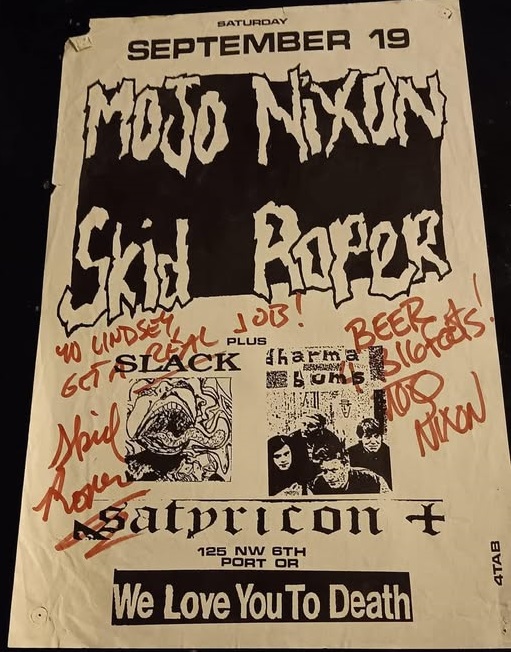 SATURDAY
SEPTEMBER 19
MOJO NIXON
Skid ROPER
YO LINDSEY,
GET A REAL JOB!
BEER
&
NIXON
Skid
Roper
PLUS
SLACK
dharma
bums
Satyricon
125 NW 6TH
PORT OR
We Love You To Death
4TAB